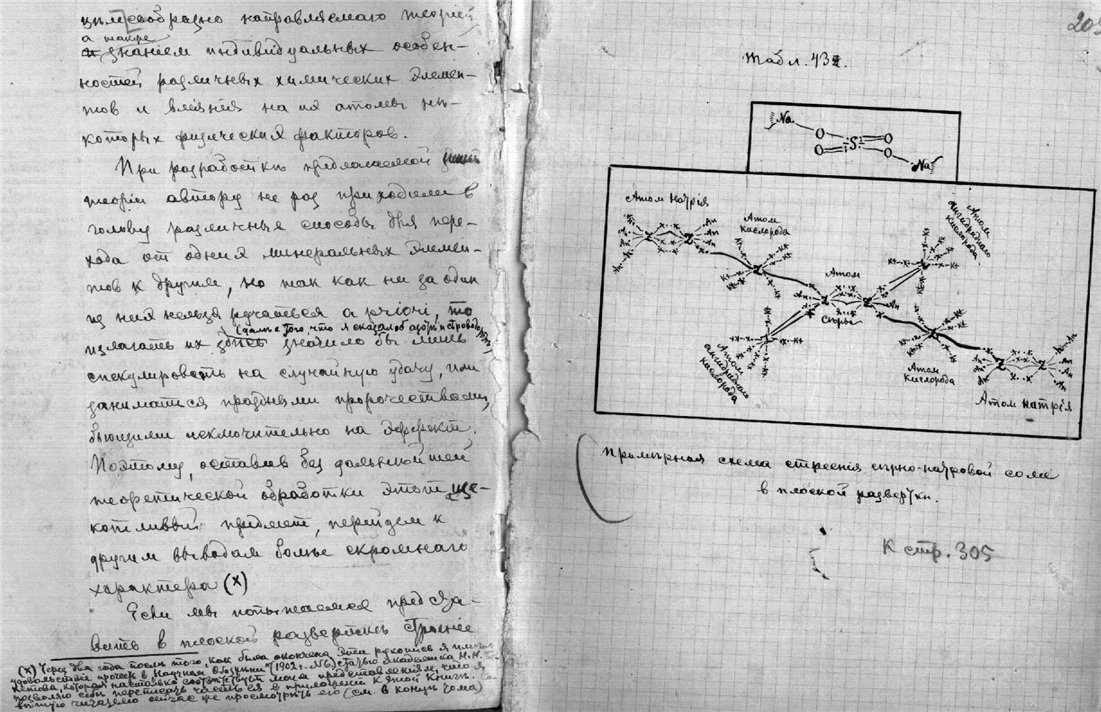 цѣлесообразно направляемаго теоріей
а также
знаніем индивидуальных особен-
ностей различных химических элемен-
тов и вліянія на их атомы нѣ-
которых физических факторов.
При разработкѣ предлагаемой
теоріи автору не раз приходили в
голову различные способы для пере-
хода от одних минеральных элемен-
тов к другим, но так как ни за один
из них нельзя ручаться a priori, то
(далѣе того, что я сказал об азотѣ и
излагать их здѣсь значило бы лишь
спекулировать на случайную удачу, или
заниматься праздными пророчествами,
бьющими исключительно на эффект.
Поэтому, оставив без дальнѣйшей
теоретической обработки этот ще-
котливый предмет, перейдем к
другим выводам болѣе скромнаго
характера (x)
Если мы попытаемся предста-
вить в плоской разверткѣ строеніе
(x) Через два года послѣ того, как была окончена эта рукопись я
удовольствіе прочесть в "Научном Обозрѣніи" (1902 г. №) статью академика Н. Н. Бе-
кетова, которая настолько соответствует моим представленіям, что я
позволю себѣ переписать в приложеніи к этой книгѣ.
читателю сейчас же просмотрѣть его (см. в концѣ тома)
Табл. 43.
Na
O
S
O
O
O
Na
Атом натрія
Атом
кислорода
Атом
ангидриднаго
кислорода
Атом
сѣры
Атом
ангидриднаго
кислорода
Атом
кислорода
Атом натрія
Примѣрная схема строенія сѣрно-натровой соли
в плоской разверткѣ.
К стр. 305